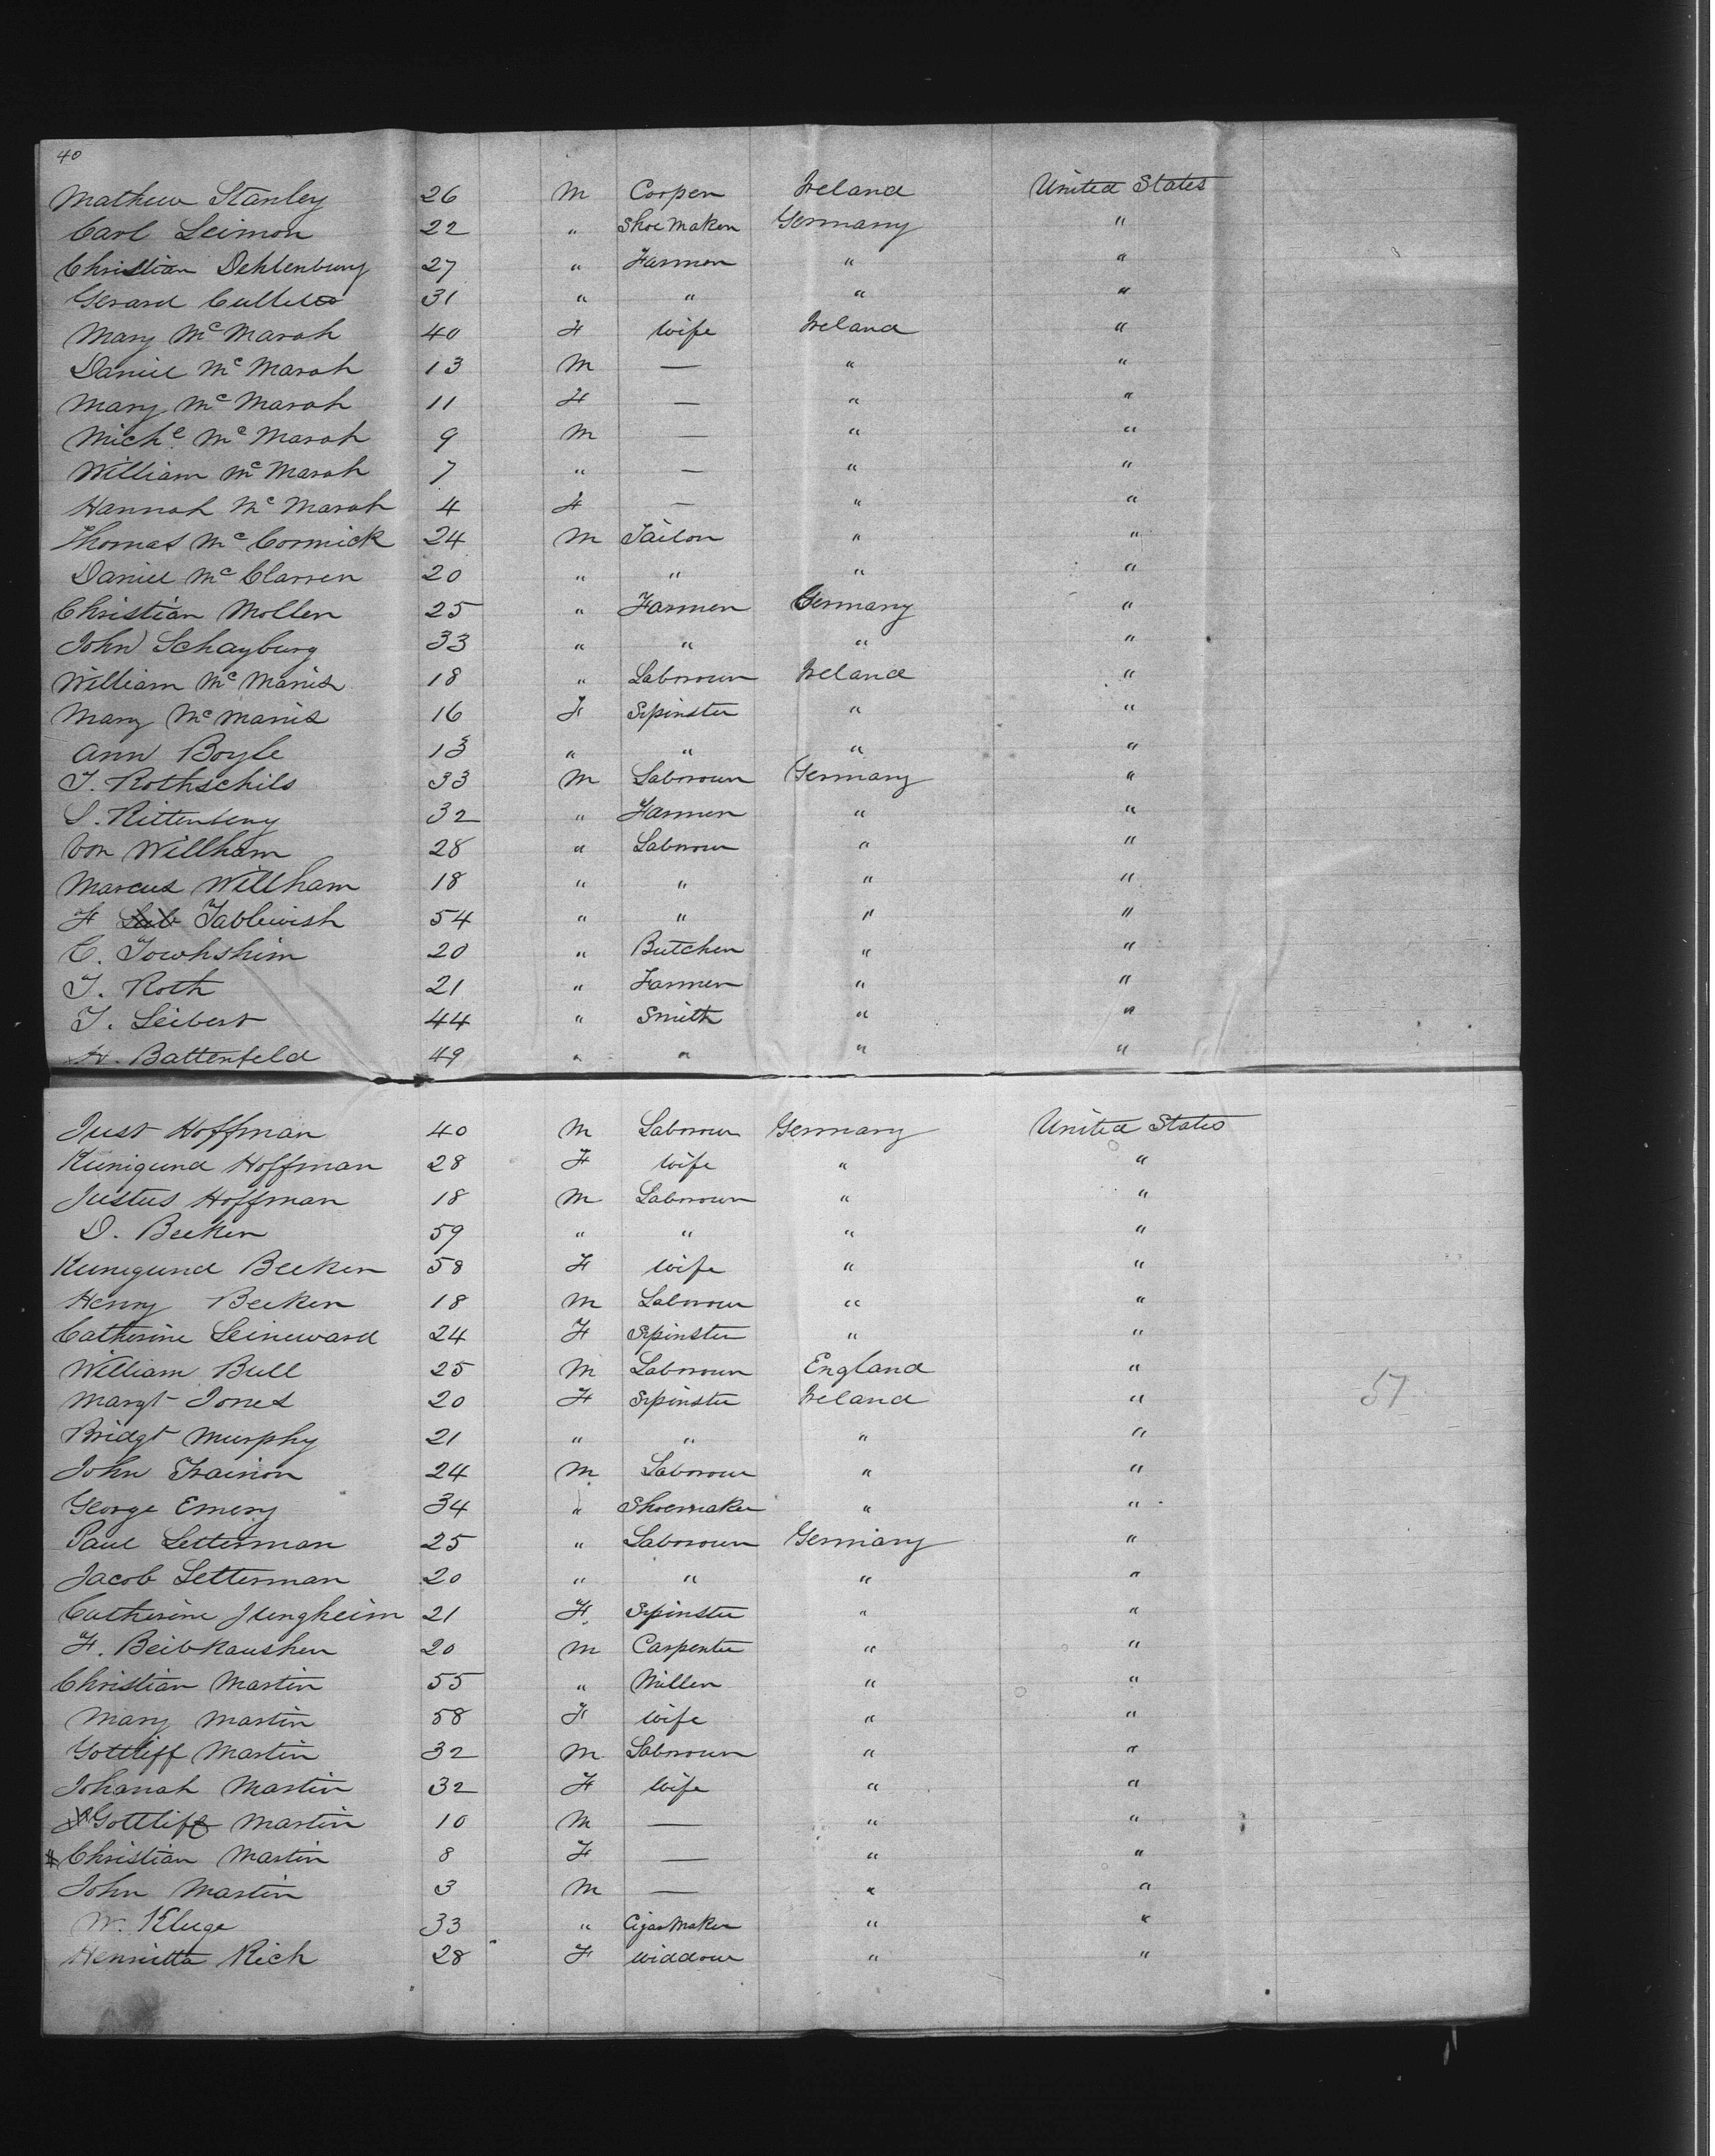 40
Mathew Stanley 26 M Cooper Ireland United States
Carl Leimon 22 " Shoe Maker Germany "
Christian Dehlenburg 27 " Farmer " "
Gerard 31 " " " "
Mary McMarah 40 F Wife Ireland "
Daniel McMarah 13 M — " "
Mary McMarah 11 F — " "
Miche McMarah 9 M — " "
William McMarah 7 " — " "
Hannah McMarah 4 F — " "
Thomas McCormick 24 M Tailor " "
Daniel McClarren 20 " " " "
Christian Moller 25 " Farmer Germany "
John Schayburg 33 " " " "
William McManis 18 " Labrour Ireland "
Mary McManis 16 F Spinster " "
Ann Boyle 13 " " " "
I. Rothschils 33 M Labrour Germany "
S. Rittenberg 32 " Farmer " "
Von Willham 28 " Labrour " "
Marcus Willham 18 " " " "
F Tablewish 54 " " " "
C. Towhshim 20 " Butcher " "
I. Roth 21 " Farmer " "
I. Seibert 44 " Smith " "
Battenfeld 49 " " " "
Just Hoffman 40 M Labrour Germany United States
Kunigund Hoffman 28 F Wife " "
Justus Hoffman 18 M Labrour " "
D. Becker 59 " " " "
Kunigund Becker 58 F Wife " "
Henry Becker 18 M Labrour " "
Catherine Leineward 24 F Spinster " "
William Bull 25 M Labrour England "
Margt Jones 20 F Spinster Ireland " 57
Bridgt Murphy 21 " " " "
John Trainor 24 M Labrour " "
George Emery 34 " Shoemaker " "
Paul Letterman 25 " Labrour Germany "
Jacob Letterman 20 " " " "
Catherine Jungheim 21 F Spinster " "
F. Beibkausher 20 M Carpenter " "
Christian Martin 55 " Miller " "
Mary Martin 58 F Wife " "
Gottliff Martin 32 M Labrour " "
Johanah Martin 32 F Wife " "
Gottliff Martin 10 M — " "
Christian Martin 8 F — " "
John Martin 3 M — " "
W. Kluge 33 " Cigar Maker " "
Henrietta Rich 28 F Widdow " "